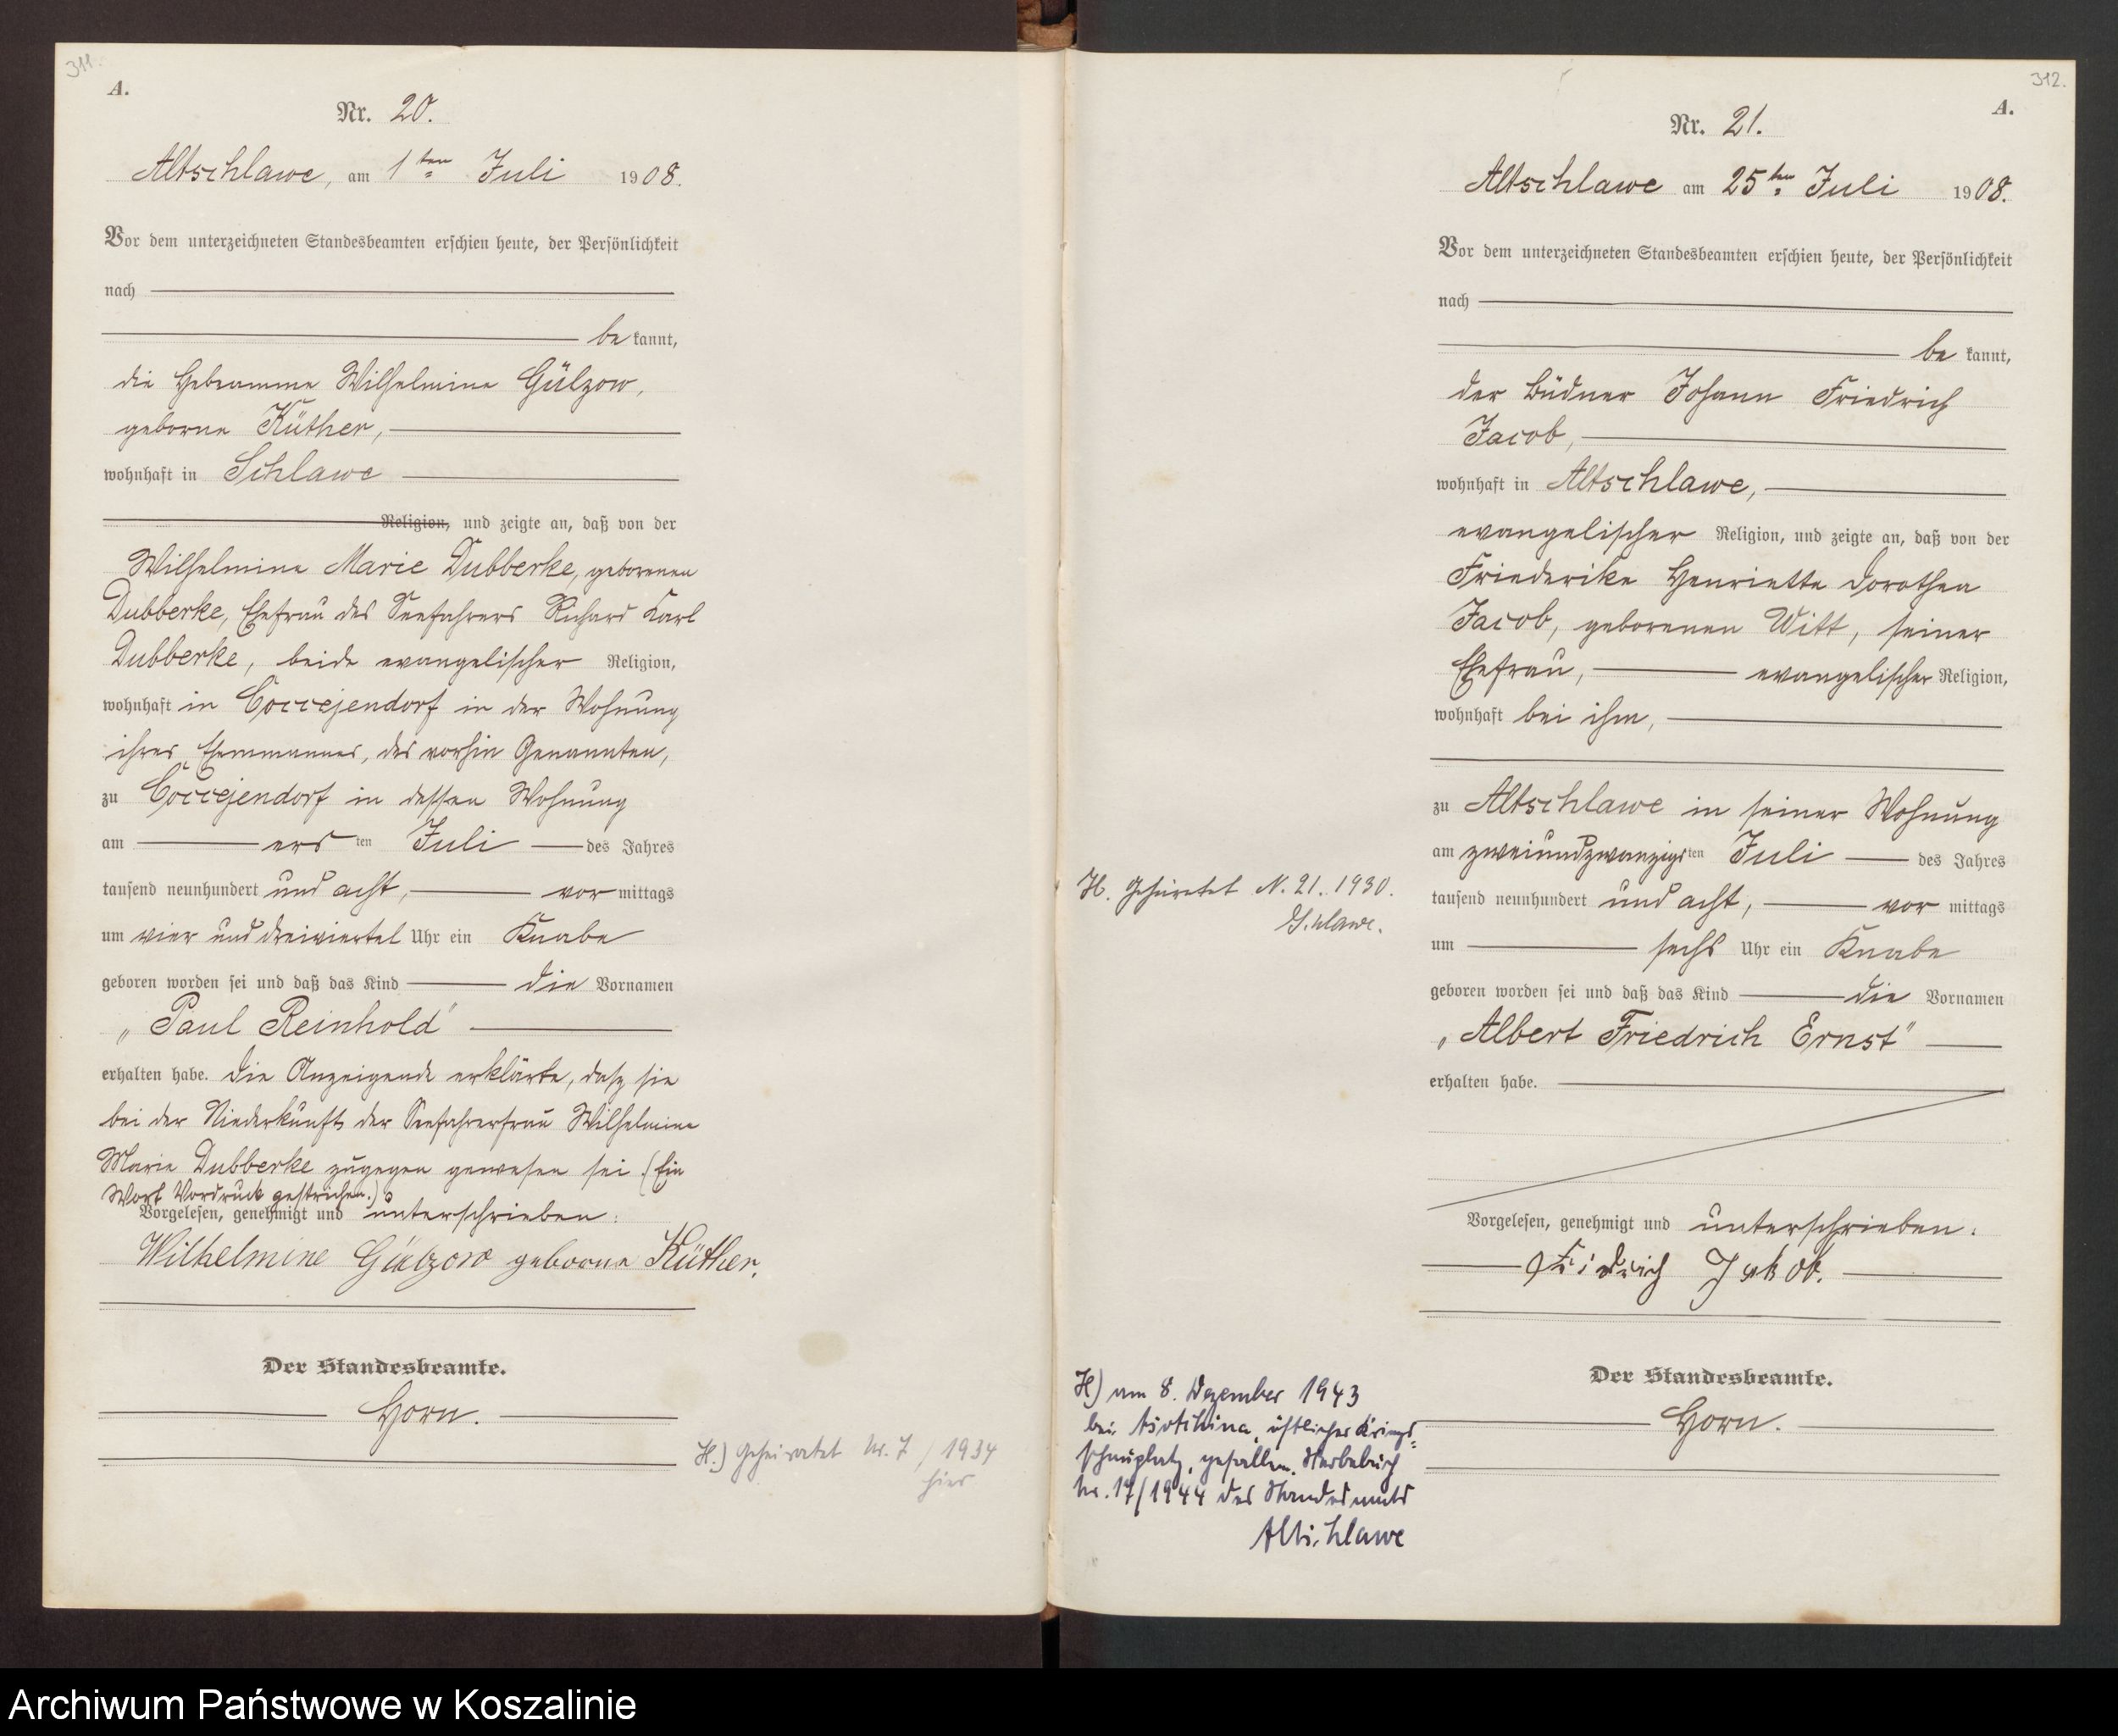 311.
A.
Nr. 20.
Altschlawe, am 1ten Juli 1908.
Vor dem unterzeichneten Standesbeamten erschien heute, der Persönlichkeit
nach
be kannt,
die Hebeamme Wilhelmine Gülzow,
geborne Küther,
wohnhaft in Schlawe
Religion, und zeigte an, daß von der
Wilhelmine Marie Dubberke, geborenen
Dubberke, Ehefrau des Seefahrers Richard Karl
Dubberke, beide evangelischer Religion,
wohnhaft in Coccejendorf in der Wohnung
ihres Ehemmannes, des vorhin Genannten,
zu Coccejendorf in dessen Wohnung
am ersten Juli des Jahres
tausend neunhundert und acht, vor mittags
um vier und dreiviertel Uhr ein Knabe
geboren worden sei und daß das Kind die Vornamen
„Paul Reinhold"
erhalten habe. Die Anzeigende erklärte, dasz sie
bei der Niederkunft der Seefahrerfrau Wilhelmine
Marie Dubberke zugegen gewesen sei. (Ein
Wort Vordruck gestrichen.)
Vorgelesen, genehmigt und unterschrieben:
Wilhelmine Gülzow geborne Küther.
Der Standesbeamte.
Horn.
H.) Geheiratet Nr. 7 / 1934
hier
312.
A.
Nr. 21.
Altschlawe am 25ten Juli 1908.
Vor dem unterzeichneten Standesbeamten erschien heute, der Persönlichkeit
nach
be kannt,
der Büdner Johann Friedrich
Jacob,
wohnhaft in Altschlawe,
evangelischer Religion, und zeigte an, daß von der
Friederike Henriette Dorothea
Jacob, geborenen Witt, seiner
Ehefrau, evangelischer Religion,
wohnhaft bei ihm,
zu Altschlawe in seiner Wohnung
am zweiundzwanzigsten Juli des Jahres
tausend neunhundert und acht, vor mittags
um sechs Uhr ein Knabe
geboren worden sei und daß das Kind die Vornamen
„Albert Friedrich Ernst"
erhalten habe.
Vorgelesen, genehmigt und unterschrieben:
Fridrich Jakob.
Der Standesbeamte.
Horn.
H. Geheiratet N. 21. 1930.
Schlawe.
H) am 8. Dezember 1943
bei, östlicher Kriegs=
schauplatz, gefallen. Sterbebuch
Nr. 17/1944 des Standesamts
Altschlawe
Archiwum Państwowe w Koszalinie